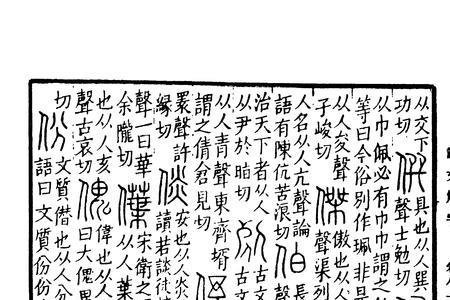 从交下
功切
僎具也从人巽
聲士勉切
从巾佩必有巾巾謂之
等曰今俗別作珮非是
从人夋聲
子峻切
傑傲也从人
聲渠列
人名从人亢聲論
語有陳伉苦浪切
伯長
聲
治天下者从人
从尹於脂切
古文
从人青聲東齊壻
謂之倩倉見切
聲許
緣切
倓安也从人炎
讀若談徒
聲一曰華
余隴切
僷宋衛之
从人葉
也从人亥
聲古哀切
傀偉也从人
曰大傀異
切
份文質僣也从人分
語曰文質份份